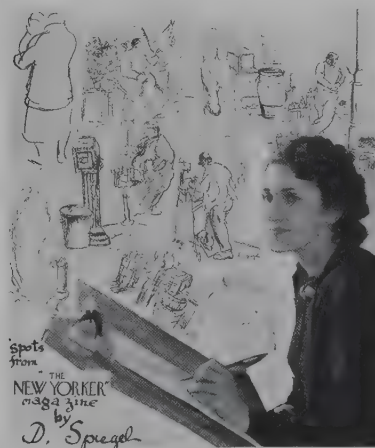 "spots
from
"THE
NEW YORKER"
magazine
by
D. Spiegel